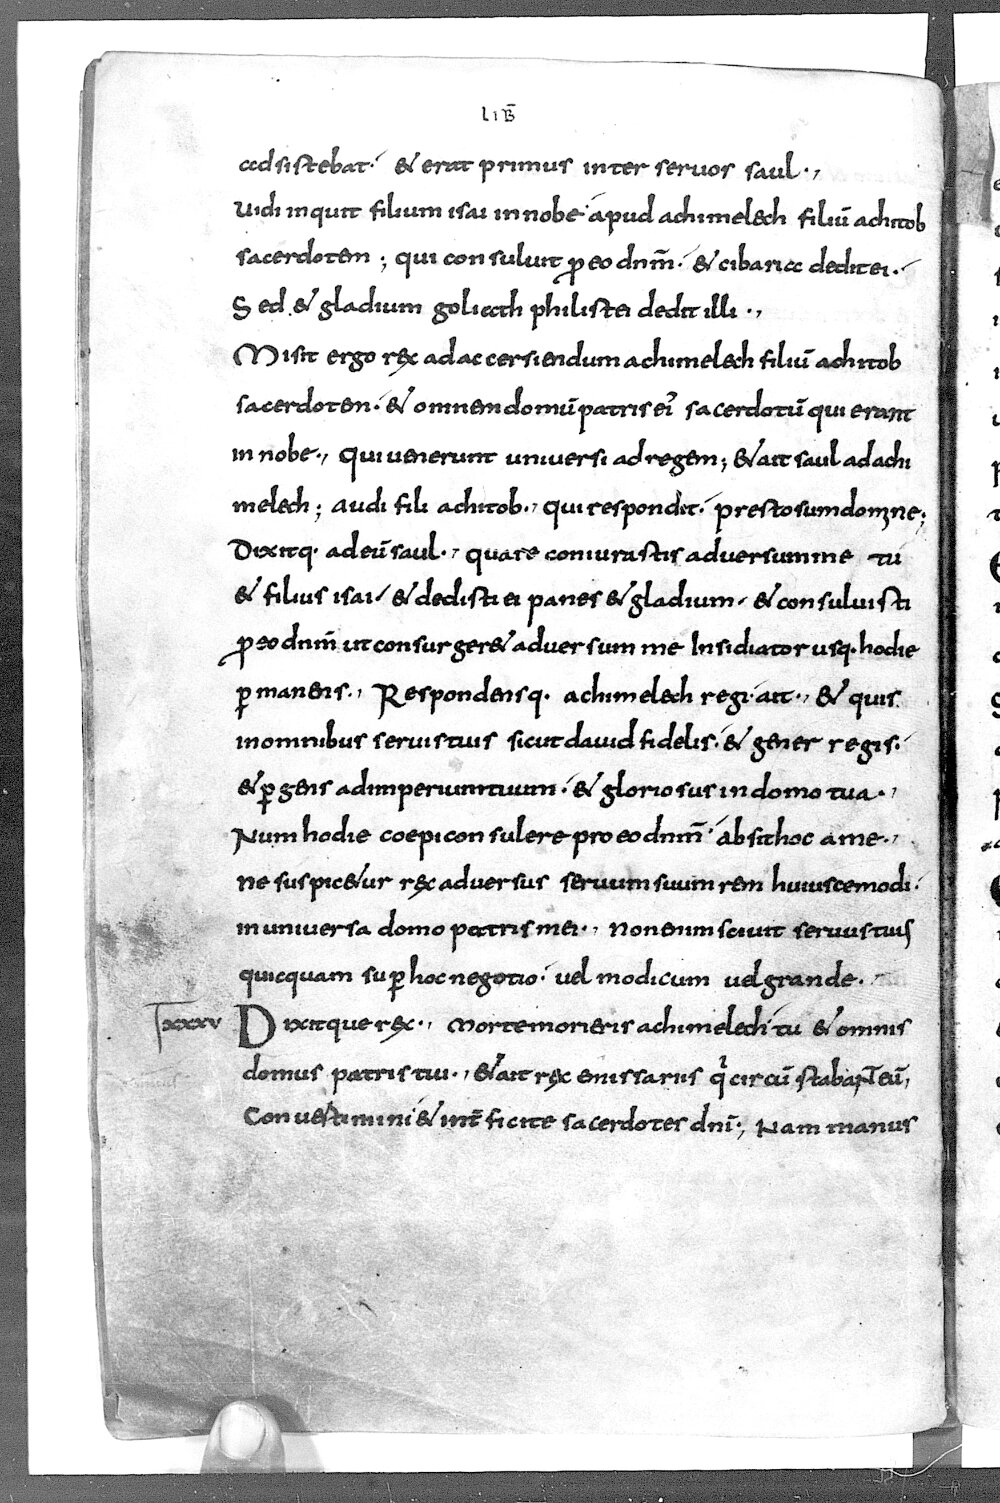 LIB̄
adsistebat· & erat primus inter servos saul·,
Vidi inquit filium isai in nobe· apud achimelech filiū achitob
sacerdotem; qui consuluit ꝓ eo dn̄m̄· & cibaria dedit ei·
Sed & gladium goliath philistei dedit illi·,
Misit ergo rex ad accersiendum achimelech filiū achitob
sacerdoten· & omnem domū patris eiꝰ sacerdotū qui erant
in nobe·, Qui venerunt universi ad regem; & ait saul ad achi
melech; audi fili achitob·, qui respondit· presto sum domine;
Dixitq· ad eū saul·, quare coniurastis adversum me tu
& filius isai· & dedisti ei panes & gladium· & consuluisti
ꝓ eo dn̄m̄ ut consurger& adversum me Insidiator usq· hodie
ꝑmanens·, Respondensq· achimelech regi· ait·, & quis
in omnibus servis tuis sicut david fidelis· & gener regis·
& ꝑgens ad imperium tuum· & gloriosus in domo tua·,
Num hodie coepi consulere pro eo dn̄m̄· absit hoc a me·,
ne suspic&ur rex adversus servum suum rem huiuscemodi·
in universa domo patris mei·, non enim scivit servus tuus
quicquam suꝑ hoc negotio· vel modicum vel grande·
lxxxv Dixitque rex·, Morte morieris achimelech· tu & omnis
domus patris tui·, & ait rex emissariis qⁱ circū stabant eū,
Convertimini & int̄ficite sacerdotes dn̄i·; Nam manus